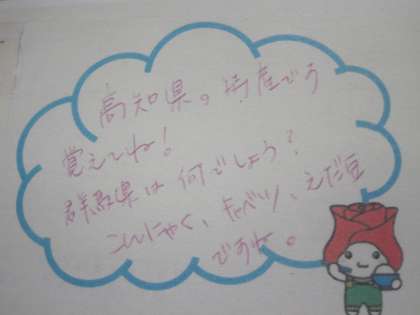 高知県。特産でう
覚えてね!
群馬県は何でしょう?
こんにゃく、キャベツ、えだ豆
ですね。